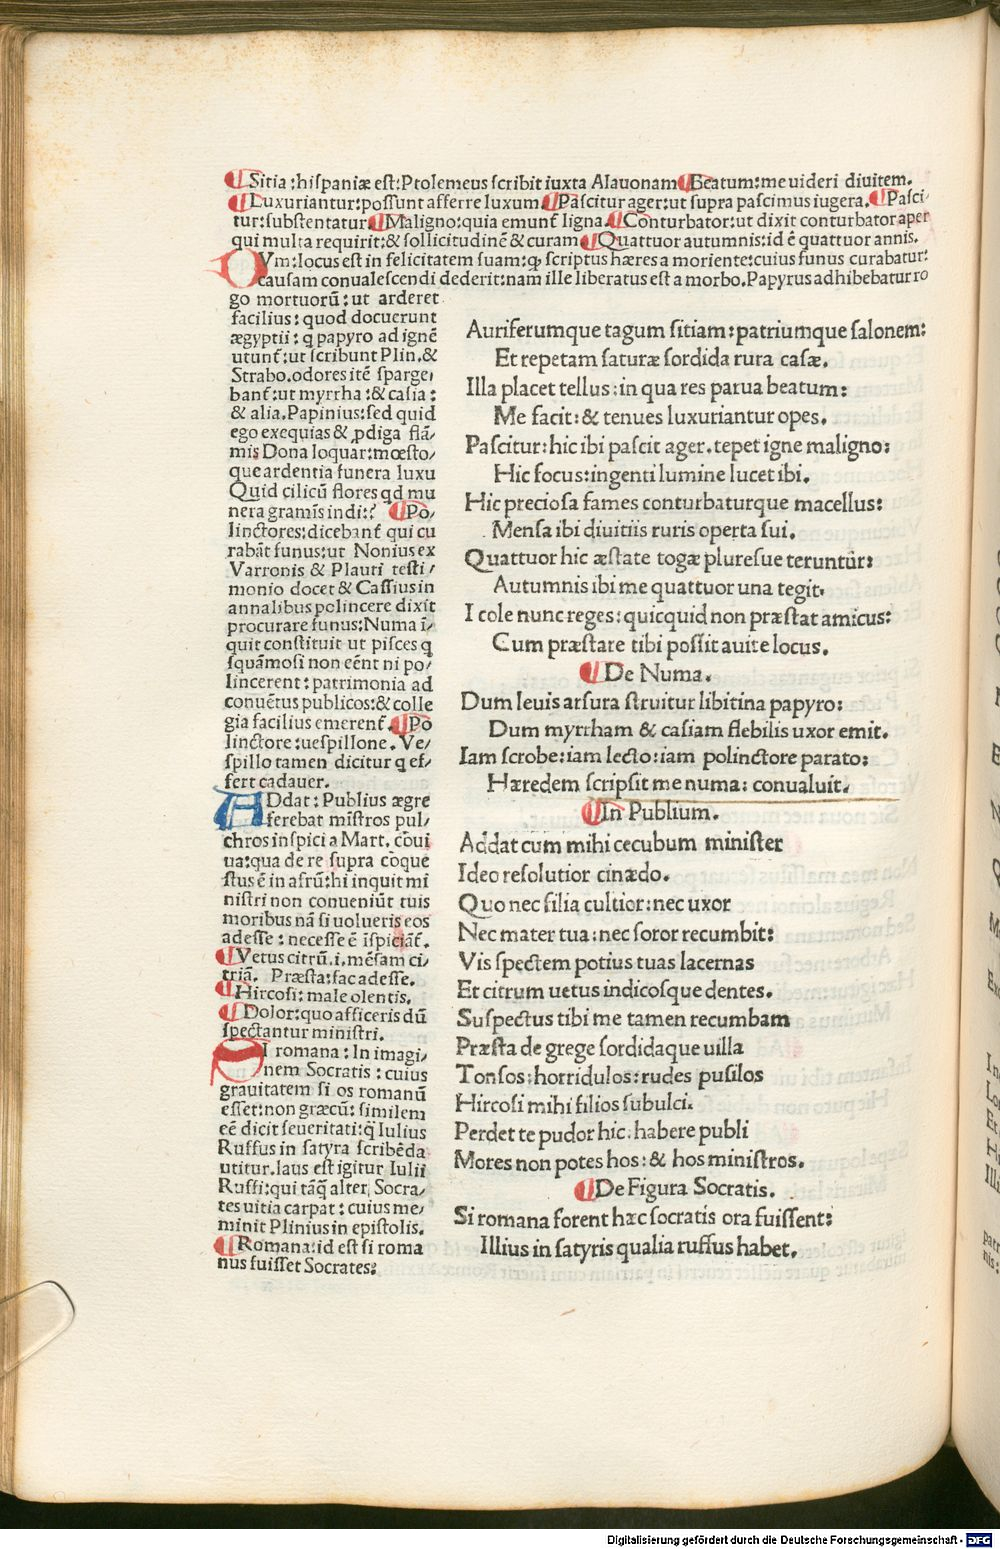 ¶Sitia:hispaniæ est:Ptolemeus scribit iuxta Alauonam¶Beatum:me uideri diuitem.
¶Luxuriantur:possunt afferre luxum.¶Pascitur ager:ut supra pascimus iugera.¶Pasci-
tur:substentatur¶Maligno:quia emunt̃ ligna.¶Conturbator:ut dixit conturbator aper
qui multa requirit:& sollicitudinẽ & curam.¶Quattuor autumnis:id ẽ quattuor annis.
DVm:locus est in felicitatem suam:ꝙ scriptus hæres a moriente:cuius funus curabatur:
causam conualescendi dederit:nam ille liberatus est a morbo.Papyrus adhibebatur ro
go mortuorũ:ut arderet
facilius:quod docuerunt
ægyptii:q papyro ad ignẽ
utunt̃:ut scribunt Plin.&
Strabo.odores itẽ sparge/
bant̃:ut myrrha:& casia:
& alia.Papinius:sed quid
ego exequias & ꝓdiga flã/
mis Dona loquar:mœsto/
que ardentia funera luxu
Quid cilicũ flores qd mu
nera gramis indi:? ¶Po/
linctores:dicebant̃ qui cu
rabãt funus:ut Nonius ex
Varronis & Plauti testi/
monio docet & Cassius in
annalibus polincere dixit
procurare funus:Numa i/
quit constituit ut pisces q
squãmosi non eẽnt ni po/
lincerent:patrimonia ad
conuẽtus publicos:& colle
gia facilius emerent̃.¶Po
linctore:uespillone.Ve/
spillo tamen dicitur q ef/
fert cadauer.
ADdat:Publius ægre
ferebat mĩstros pul/
chros inspici a Mart.cõui
ua:qua de re supra cõque
stus ẽ in afrũ:hi inquit mi
nistri non conueniũt tuis
moribus nã si uolueris eos
adesse:necesse ẽ ĩspiciãt̃.
¶Vetus citrũ.i.mẽsam ci/
triã. Præsta:fac adesse.
¶Hircosi:male olentis.
¶Dolor:quo afficeris dũ
spectantur ministri.
SI romana:In imagi/
nem Socratis:cuius
grauitatem si os romanũ
esset:non græcũ:similem
eẽ dicit seueritati:q̃ Iulius
Ruffus in satyra scribẽda
utitur.laus est igitur Iulii
Ruffi:qui tãq̃ alter Socra/
tes uitia carpat:cuius me/
minit Plinius in epistolis.
¶Romana:id est si roma
nus fuisset Socrates:
Auriferumque tagum sitiam:patriumque salonem:
Et repetam saturæ sordida rura casæ.
Illa placet tellus:in qua res parua beatum:
Me facit:& tenues luxuriantur opes.
Pascitur:hic ibi pascit ager.tepet igne maligno:
Hic focus:ingenti lumine lucet ibi.
Hic preciosa fames conturbaturque macellus:
Mensa ibi diuitiis ruris operta sui.
Quattuor hic æstate togæ pluresue teruntur:
Autumnis ibi me quattuor una tegit.
I cole nunc reges:quicquid non præstat amicus:
Cum præstare tibi possit auite locus.
¶De Numa.
Dum leuis arsura struitur libitina papyro:
Dum myrrham & casiam flebilis uxor emit.
Iam scrobe:iam lecto:iam polinctore parato:
Hæredem scripsit me numa:conualuit.
¶In Publium.
Addat cum mihi cecubum minister
Ideo resolutior cinædo.
Quo nec filia cultior:nec uxor
Nec mater tua:nec soror recumbit:
Vis spectem potius tuas lacernas
Et citrum uetus indicosque dentes.
Suspectus tibi me tamen recumbam
Præsta de grege sordidaque uilla
Tonsos:horridulos:rudes pusilos
Hircosi mihi filios subulci.
Perdet te pudor hic.habere publi
Mores non potes hos:& hos ministros.
¶De Figura Socratis.
Si romana forent hæc socratis ora fuissent:
Illius in satyris qualia ruffus habet.
Digitalisierung gefördert durch die Deutsche Forschungsgemeinschaft - DFG